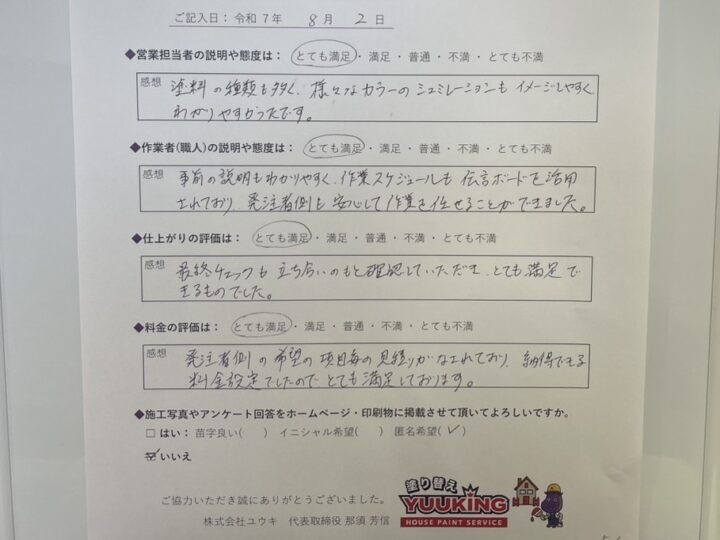 ご記入日：令和7年 8月 2日
◆営業担当者の説明や態度は： とても満足・満足・普通・不満・とても不満
感想 塗料の種類も多く、様々なカラーのシュミレーションも イメージしやすく
わかりやすかったです。
◆作業者(職人)の説明や態度は： とても満足・満足・普通・不満・とても不満
感想 事前の説明もわかりやすく、作業スケジュールも 伝言ボードを活用
されており 発注者側も 安心して作業を任せることができました。
◆仕上がりの評価は： とても満足・満足・普通・不満・とても不満
感想 最終チェックも 立ち合いのもと確認していただき、とても満足で
きるものでした。
◆料金の評価は： とても満足・満足・普通・不満・とても不満
感想 発注者側の希望の項目毎の見積りがなされており、納得できる
料金設定でしたのでとても満足しております。
◆施工写真やアンケート回答をホームページ・印刷物に掲載させて頂いてよろしいですか。
□ はい： 苗字良い( ) イニシャル希望( ) 匿名希望(✓)
☑いいえ
ご協力いただき誠にありがとうございました。
株式会社ユウキ 代表取締役 那須 芳信
塗り替え
YUUKING
HOUSE PAINT SERVICE